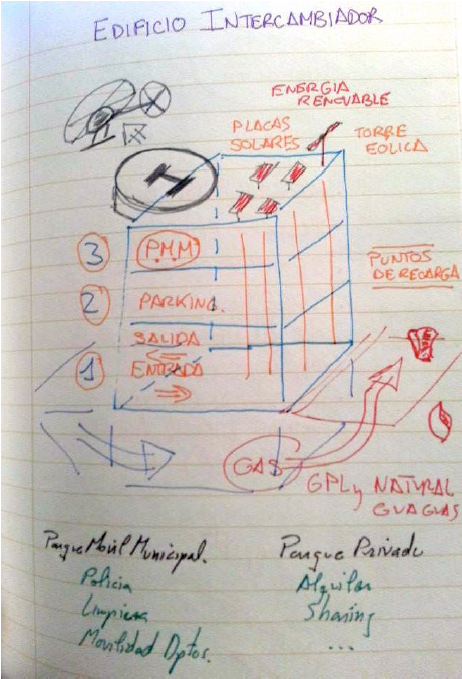 EDIFICIO INTERCAMBIADOR
ENERGIA
RENOVABLE
PLACAS
SOLARES
TORRE
EOLICA
H
3
P.M.M
PUNTOS
DE RECARGA
2
PARKING.
SALIDA
1
ENTRADA
GAS
GPL y NATURAL
GUAGUAS
Parque Movil Municipal.
Policia
Limpieza
Movilidad Dptos.
Parque Privado
Alquiler
Sharing
...